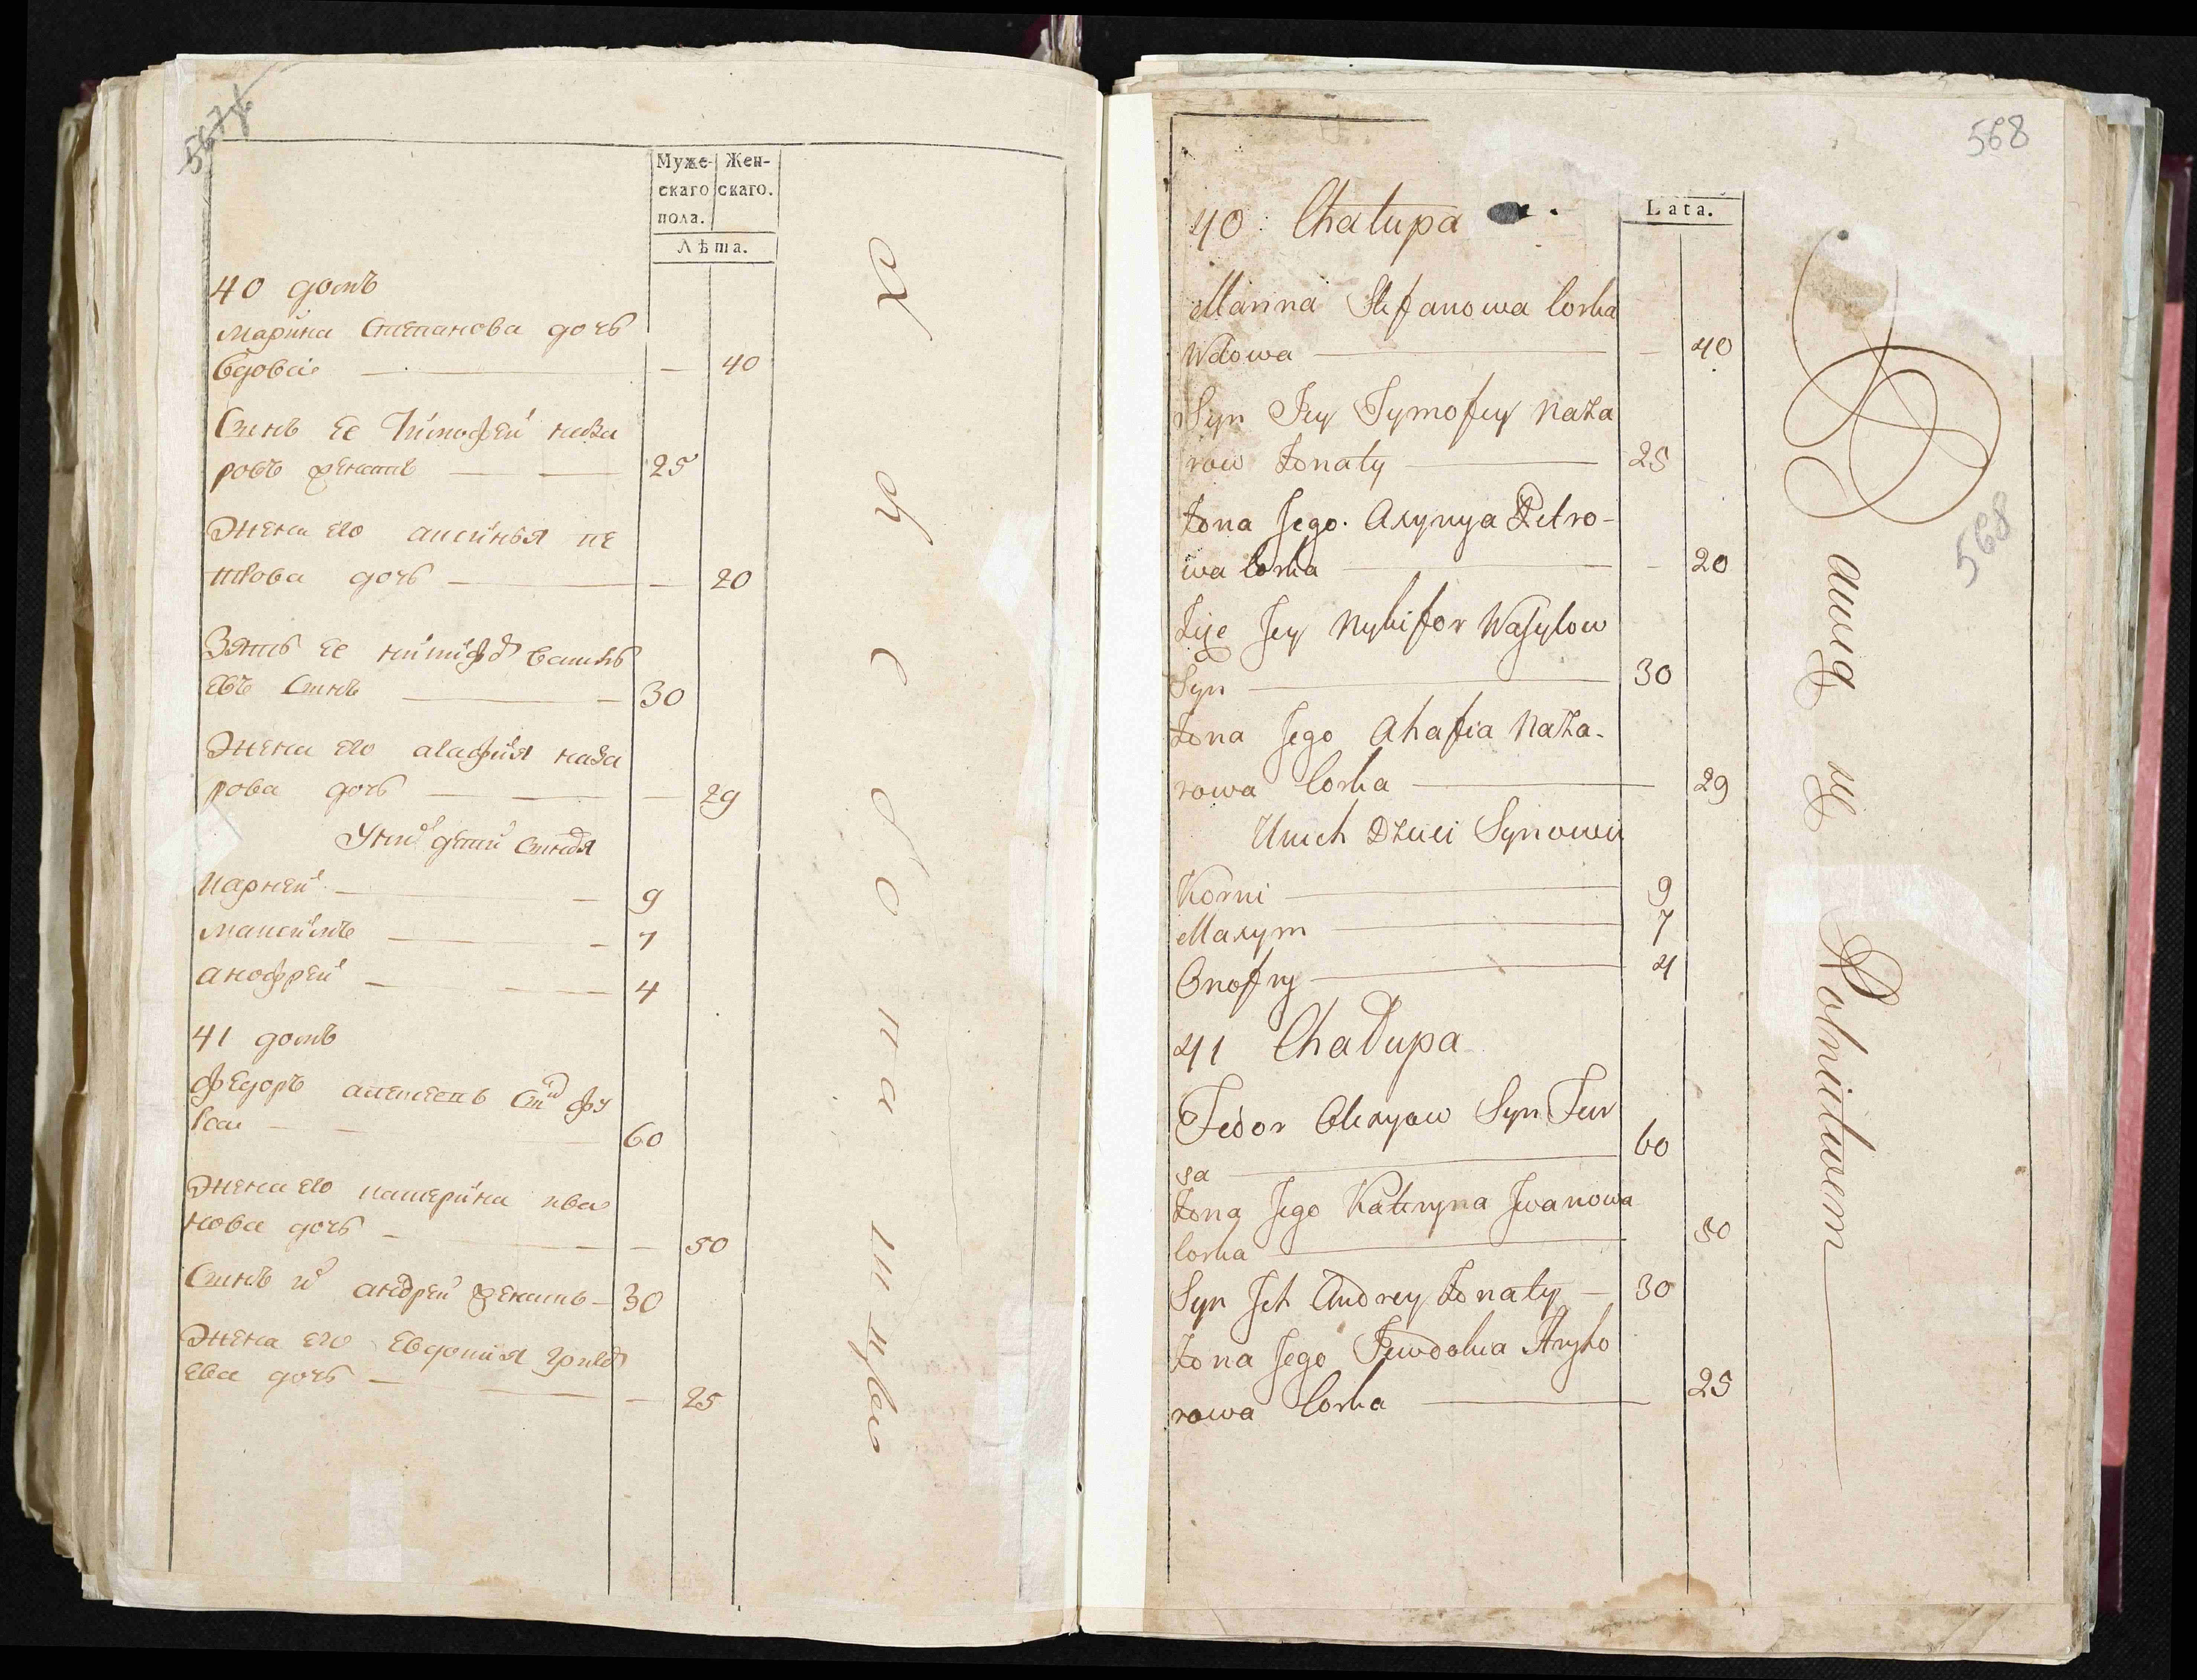 567
Муже- Жен-
скаго скаго.
пола.
Лѣта.
40 домъ
Марина Степанова дочь
вдова — — 40
Сынъ ее Тимофей наза
ровъ женатъ — 25
Жена его аксинья пе
трова дочь — — 20
Зять ее никифоръ василь
евъ сынъ — 30
Жена его агафия наза
рова дочь — — 29
У них дети сыновя
Карней — 9
Максимъ — 7
анофрей — 4
41 домъ
федоръ алексеевъ сынъ фу
рса — 60
Жена его катерина ива
нова дочь — — 50
Сынъ их андрей женатъ — 30
Жена его Евдокия григор
ева дочь — — 25
568
Lata.
40 Chałupa
Marina Stefanowa Corka
Wdowa — — 40
Syn Jey Tymofey Naza
row Zonaty — 25
Zona Jego Axynya Petro-
wa Corka — — 20
Zięc Jey Nykifor Wasylow
Syn — 30
Zona Jego Ahafia Naza-
rowa Corka — 29
Unich Dzieci Synowie
Korni — 9
Maxym — 7
Onofry — 4
41 Chałupa
Fedor Olexyow Syn Fur
sa — 60
Zona Jego Kateryna Jwanowa
Corka — 50
Syn Jch Andrey Zonaty — 30
Zona Jego Jewdokia Hryho
rowa Corka — 25
568
Rolnictwem